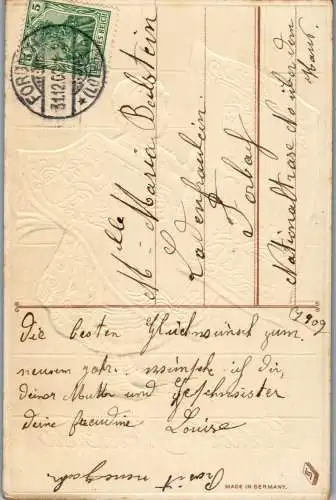 5
FORBACH
31.12.
(LOTHR.)
Mlle Maria Beilstein
Ladenfräulein
Forbach
Nationalstrase No über dem
1909
die besten Glückwünsch zum
neuem jahr wünsche ich dir,
deiner Mutter und Geschwister
deine freundine Louise
Prosit neues jahr
MADE IN GERMANY.